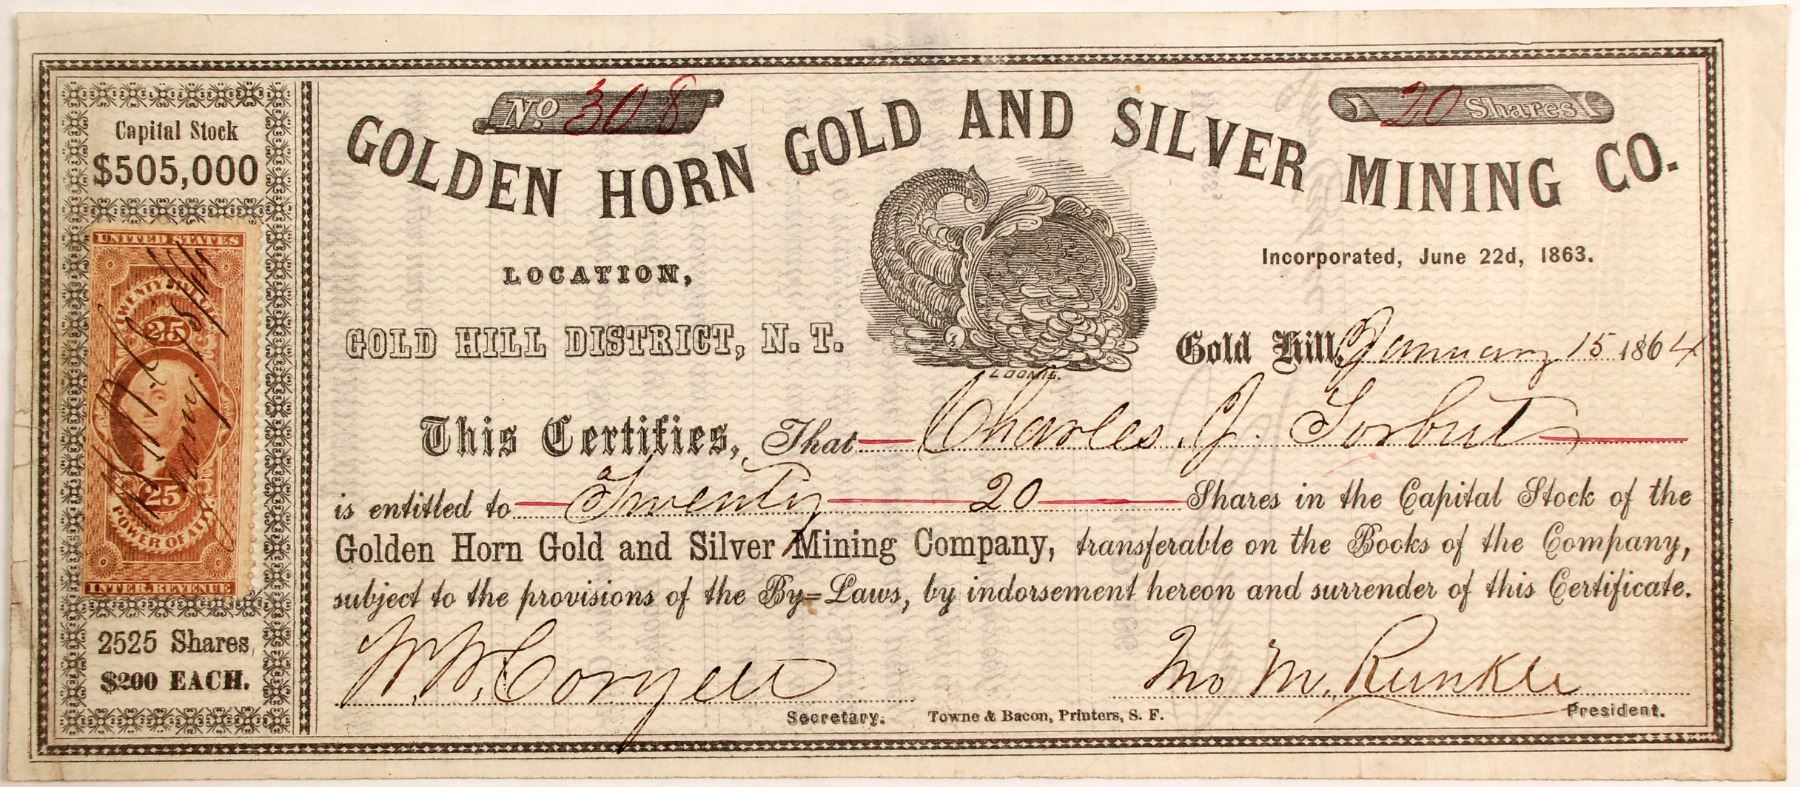 No 308
20 Shares
GOLDEN HORN GOLD AND SILVER MINING CO.
Capital Stock
$505,000
Incorporated, June 22d, 1863.
LOCATION,
GOLD HILL DISTRICT, N. T.
LOOMIS.
Gold Hill, January 15 1864
UNITED STATES
TWENTY FIVE CENTS
25
25
POWER OF ATTY.
INTER. REVENUE
This Certifies, That Charles. J. Torbut
is entitled to Twenty 20 Shares in the Capital Stock of the
Golden Horn Gold and Silver Mining Company, transferable on the Books of the Company,
subject to the provisions of the By=Laws, by indorsement hereon and surrender of this Certificate.
2525 Shares
$200 EACH.
W. W. Coryell
Secretary.
Towne & Bacon, Printers, S. F.
Jno M. Runkle
President.